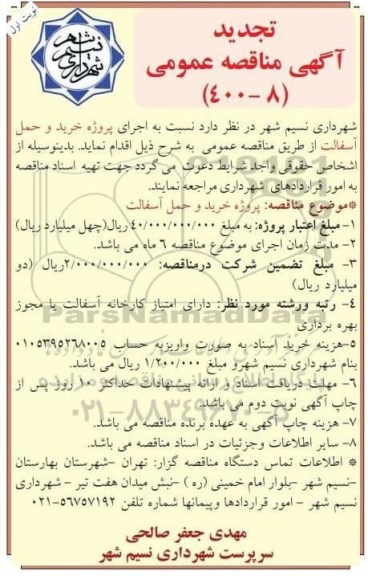 نوبت اول
شهرداری نسیم شهر
تجدید
آگهی مناقصه عمومی
(۸ -۴۰۰)
شهرداری نسیم شهر در نظر دارد نسبت به اجرای پروژه خرید و حمل
آسفالت از طریق مناقصه عمومی به شرح ذیل اقدام نماید. بدینوسیله از
اشخاص حقوقی واجد شرایط دعوت می گردد جهت تهیه اسناد مناقصه
به امور قراردادهای شهرداری مراجعه نمایند.
*موضوع مناقصه: پروژه خرید و حمل آسفالت
۱- مبلغ اعتبار پروژه: به مبلغ ۴۰/۰۰۰/۰۰۰/۰۰۰ ریال(چهل میلیارد ریال)
۲- مدت زمان اجرای موضوع مناقصه ۶ ماه می باشد.
۳- مبلغ تضمین شرکت درمناقصه: ۲/۰۰۰/۰۰۰/۰۰۰ریال (دو
میلیارد ریال)
۴- رتبه ورشته مورد نظر: دارای امتیاز کارخانه آسفالت با مجوز
بهره برداری
۵-هزینه خرید اسناد به صورت واریزبه حساب ۰۱۰۵۳۹۵۲۶۸۰۰۵
بنام شهرداری نسیم شهرو مبلغ ۱/۲۰۰/۰۰۰ ریال می باشد.
۶- مهلت دریافت اسناد و ارائه پیشنهادات حداکثر ۱۰ روز پس از
چاپ آگهی نوبت دوم می باشد.
۷- هزینه چاپ آگهی به عهده برنده مناقصه می باشد.
۸- سایر اطلاعات وجزئیات در اسناد مناقصه می باشد.
* اطلاعات تماس دستگاه مناقصه گزار: تهران -شهرستان بهارستان
-نسیم شهر -بلوار امام خمینی (ره ) -نبش میدان هفت تیر - شهرداری
نسیم شهر - امور قراردادها وپیمانها شماره تلفن ۵۶۷۵۷۱۹۲-۰۲۱
مهدی جعفر صالحی
سرپرست شهرداری نسیم شهر
ParsNamadData
۰۲۱-۸۸۳۴۹۶۷۰-۵